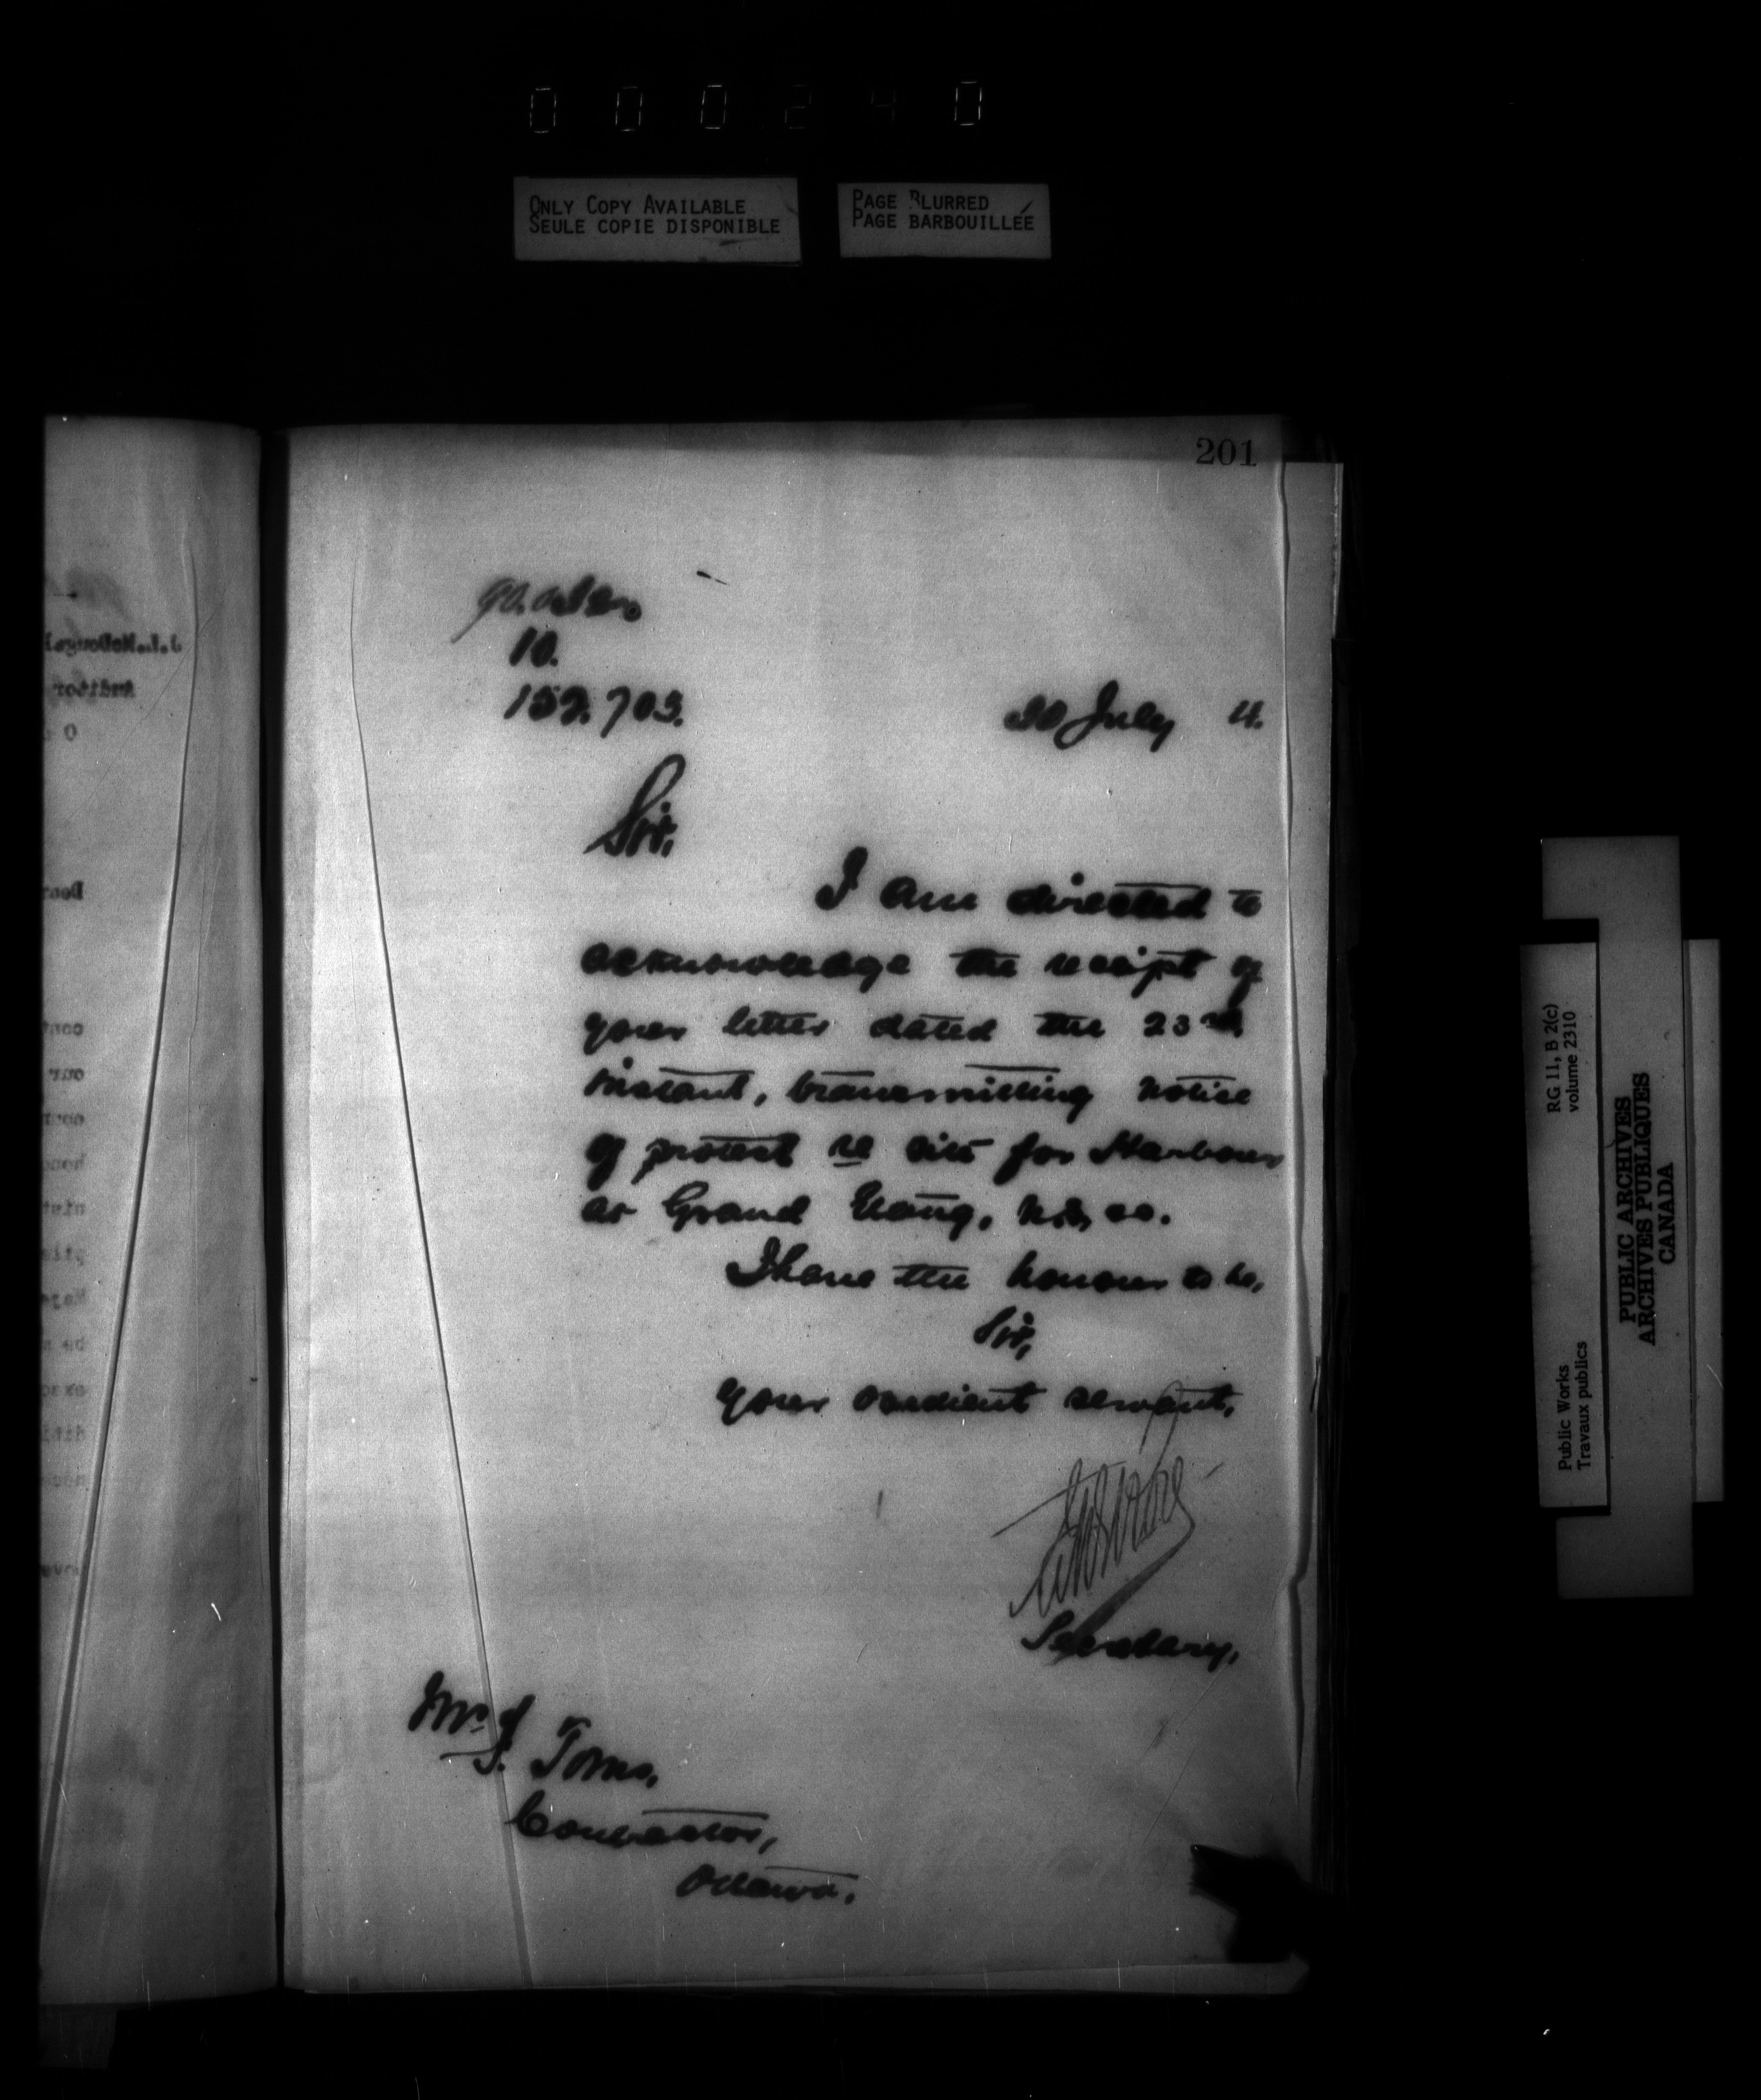 0 0 0 2 4 0
ONLY COPY AVAILABLE
SEULE COPIE DISPONIBLE
PAGE BLURRED
PAGE BARBOUILLÉE
201
10.
152.703.
30 July 4.
Sir,
I am directed to
acknowledge the receipt of
your letter dated the 23rd
instant, transmitting notice
of protest re site for Harbour
at Grand Etang, N.S. &c.
I have the honour to be,
Sir,
Your obedient servant,
Secretary.
Mr J. Toms,
Contractor,
Ottawa.
RG 11, B 2(c)
volume 2310
Public Works
Travaux publics
PUBLIC ARCHIVES
ARCHIVES PUBLIQUES
CANADA